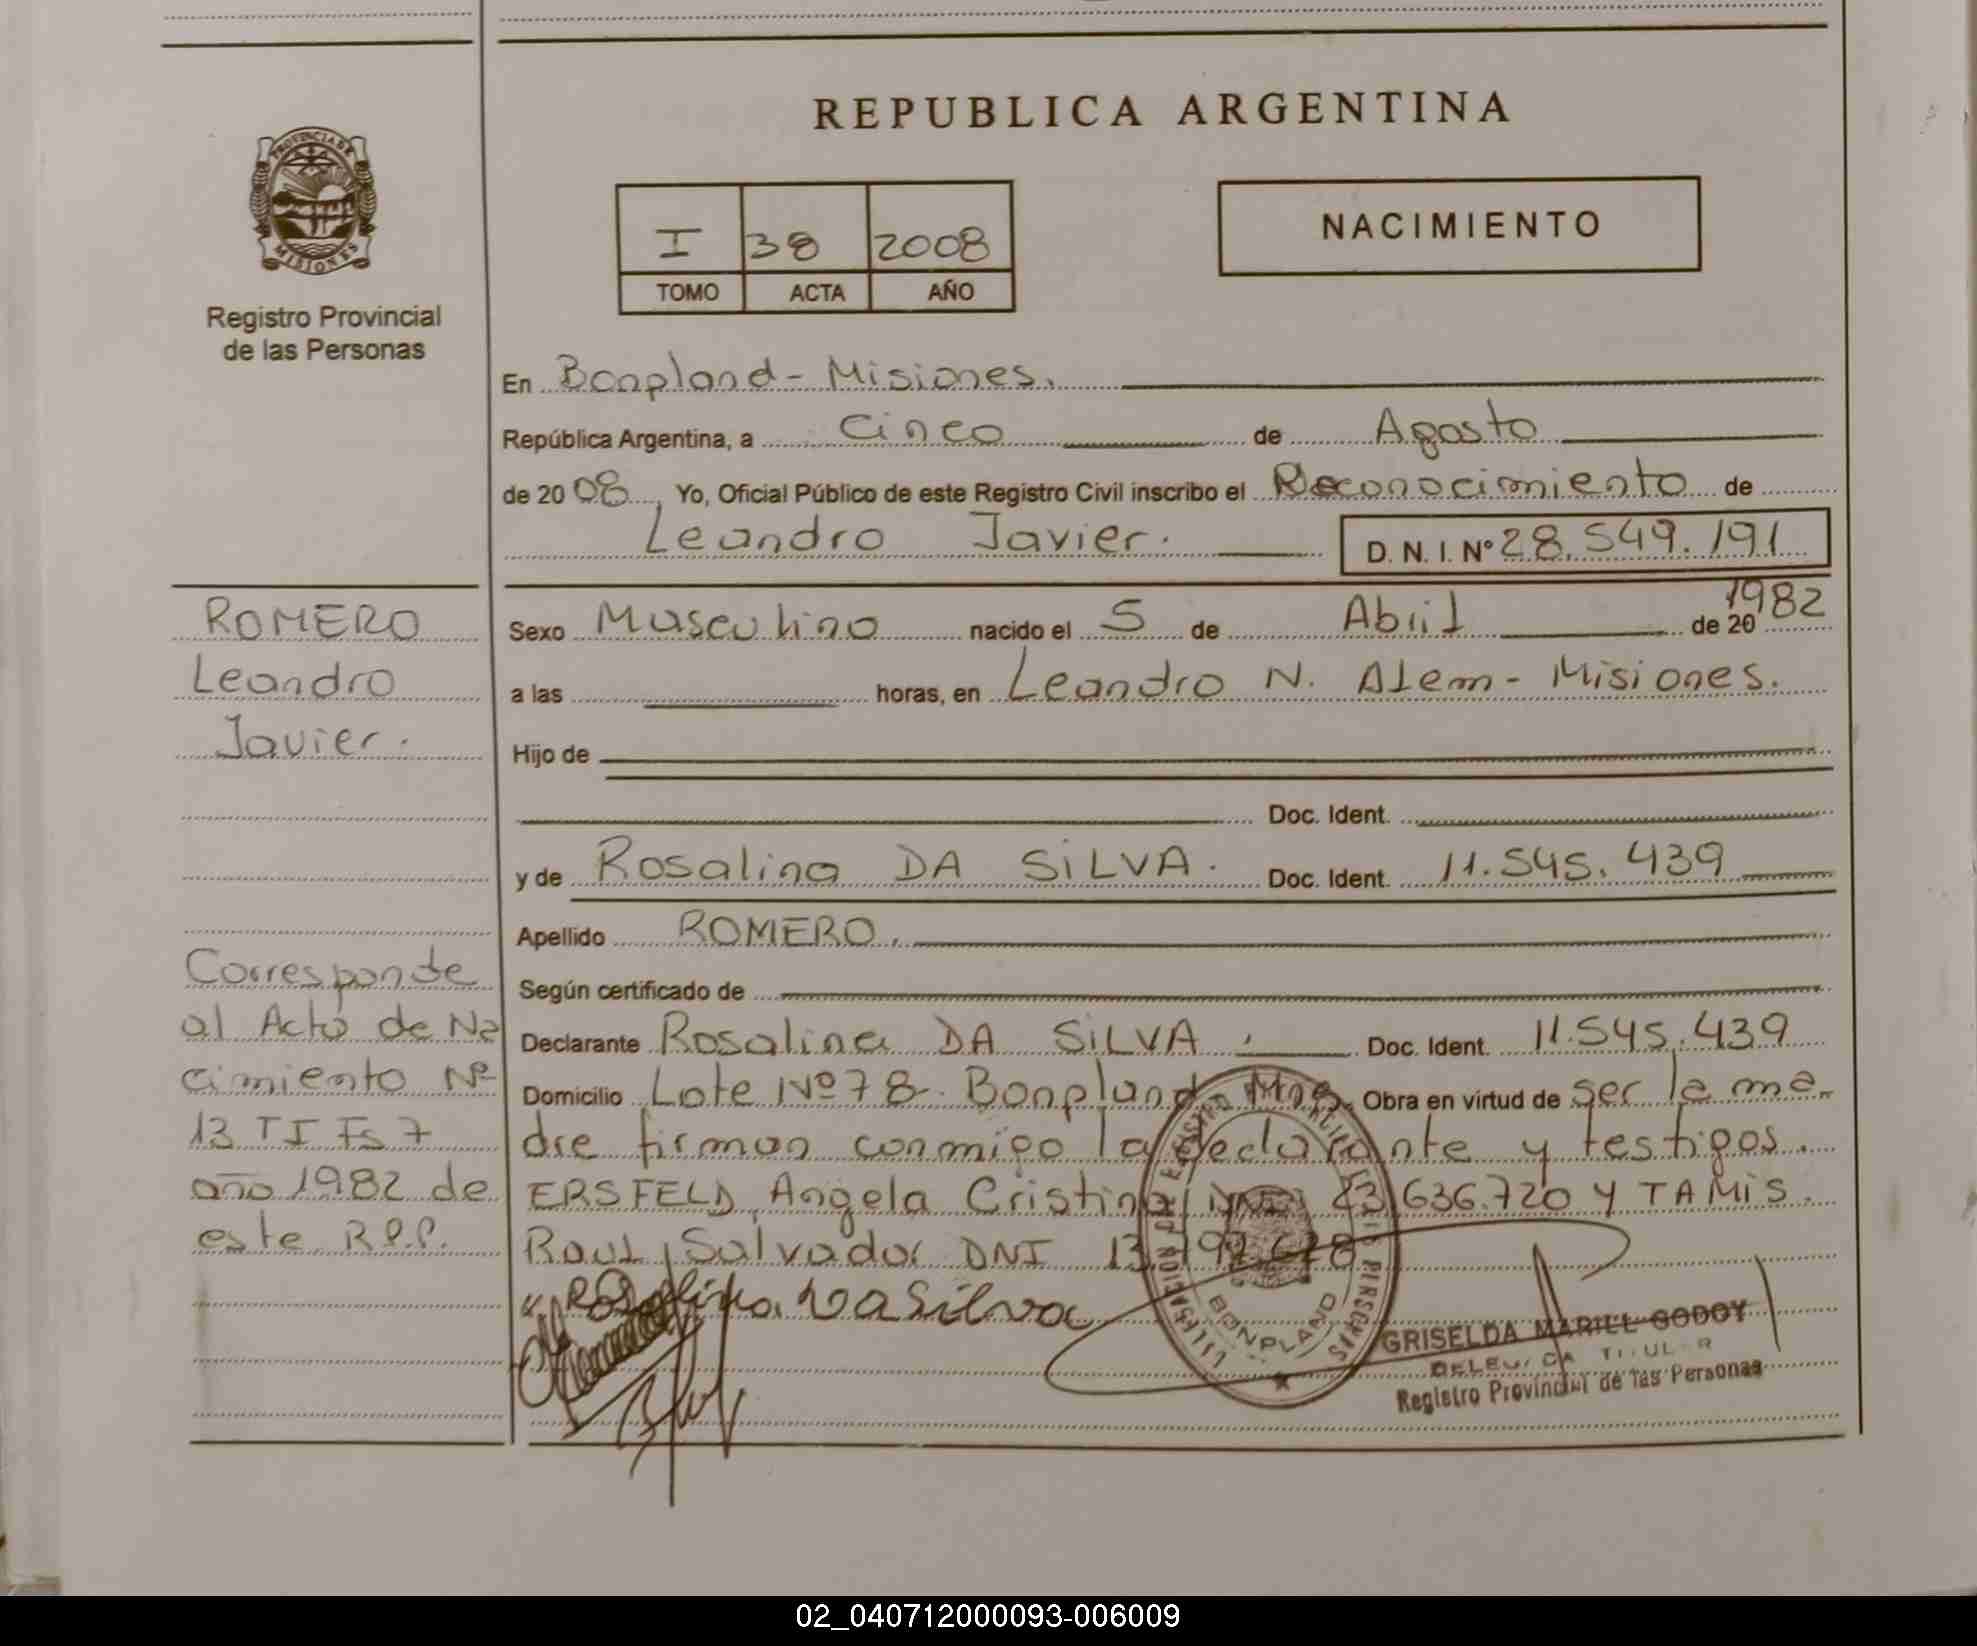 PROVINCIA DE
MISIONES
Registro Provincial
de las Personas
REPUBLICA ARGENTINA
I 38 2008
TOMO ACTA AÑO
NACIMIENTO
En Bonpland - Misiones.
República Argentina, a Cinco de Agosto
de 2008, Yo, Oficial Público de este Registro Civil inscribo el Reconocimiento de
Leandro Javier. D. N. I. Nº 28.549.191
Sexo Masculino nacido el 5 de Abril de 20 1982
a las horas, en Leandro N. Alem - Misiones.
Hijo de
Doc. Ident.
y de Rosalina DA SiLVA. Doc. Ident. 11.545.439
Apellido ROMERO.
Según certificado de
Declarante Rosalina DA SiLVA. Doc. Ident. 11.545.439
Domicilio Lote Nº 78. Bonpland Mnes. Obra en virtud de ser la ma
dre firman conmigo la declarante y testigos.
ERSFELD, Angela Cristina DNI 23.636.720 Y TAMIS.
Raul Salvador DNI
Rosalina Da Silva
ROMERO
Leandro
Javier.
Corresponde
al Acto de Na
cimiento Nº
13 TI Fs 7
año 1982 de
este R.P.P.
BONPLAND
GRISELDA MARIEL GODOY
DELEGADA TITULAR
Registro Provincial de las Personas
02_040712000093-006009